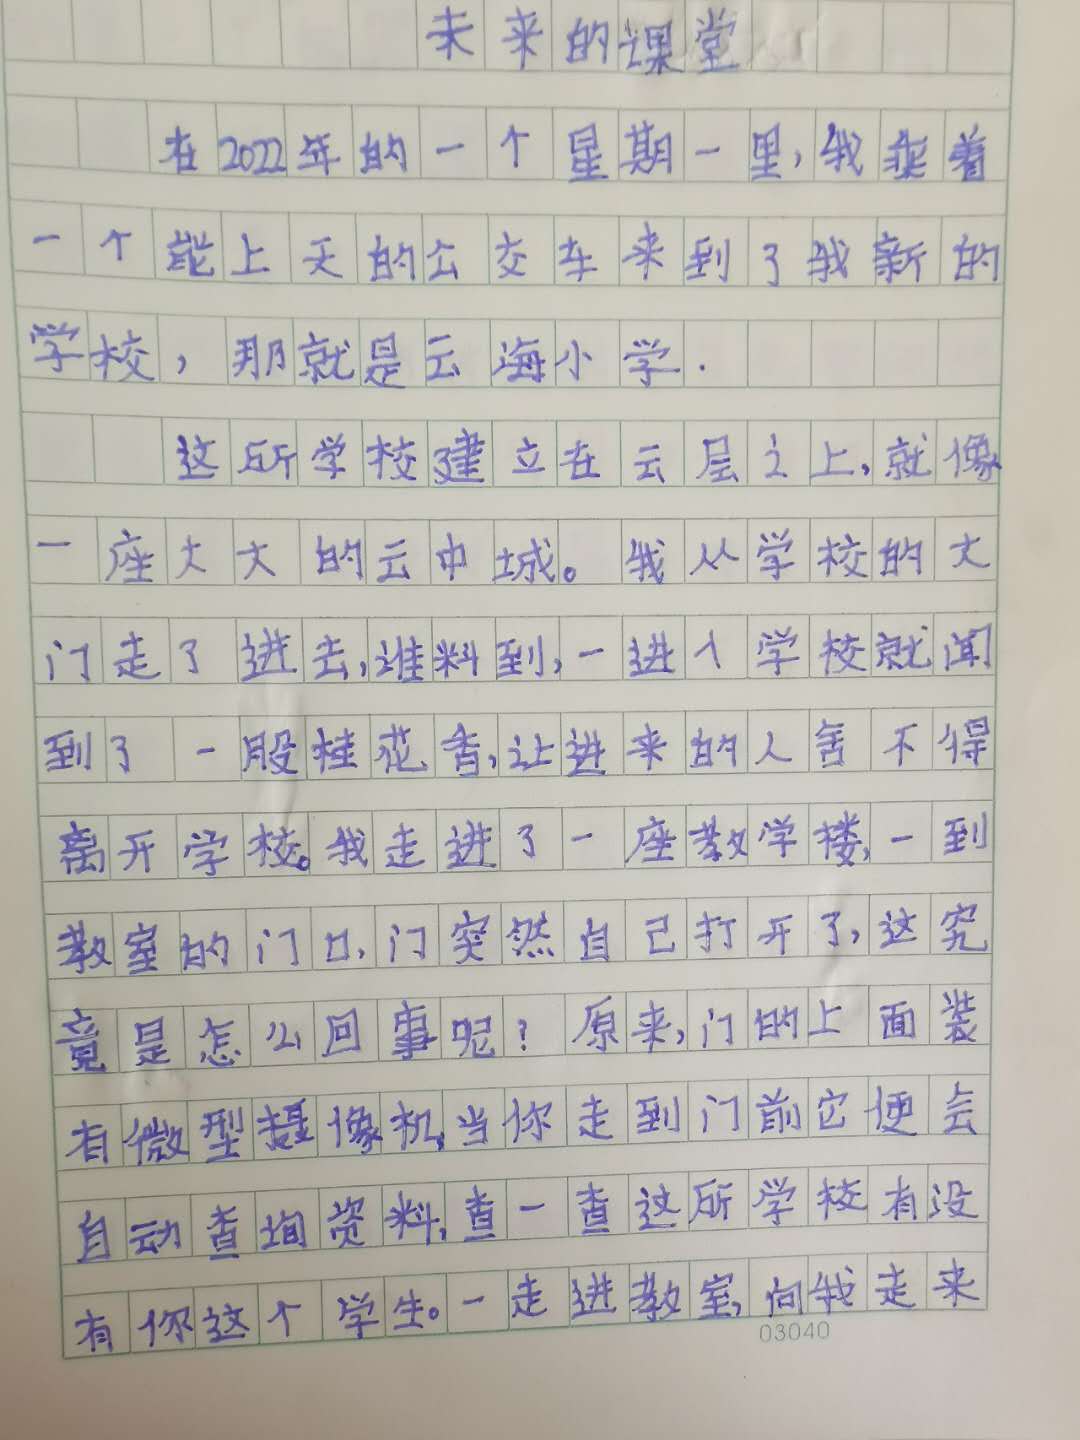 未来的课堂
在2022年的一个星期一里,我乘着
一个能上天的公交车来到了我新的
学校,那就是云海小学.
这所学校建立在云层之上,就像
一座大大的云中城。我从学校的大
门走了进去,谁料到,一进入学校就闻
到了一股桂花香,让进来的人舍不得
离开学校。我走进了一座教学楼,一到
教室的门口,门突然自己打开了,这究
竟是怎么回事呢?原来,门的上面装
有微型摄像机,当你走到门前它便会
自动查询资料,查一查这所学校有没
有你这个学生。一走进教室,向我走来
03040